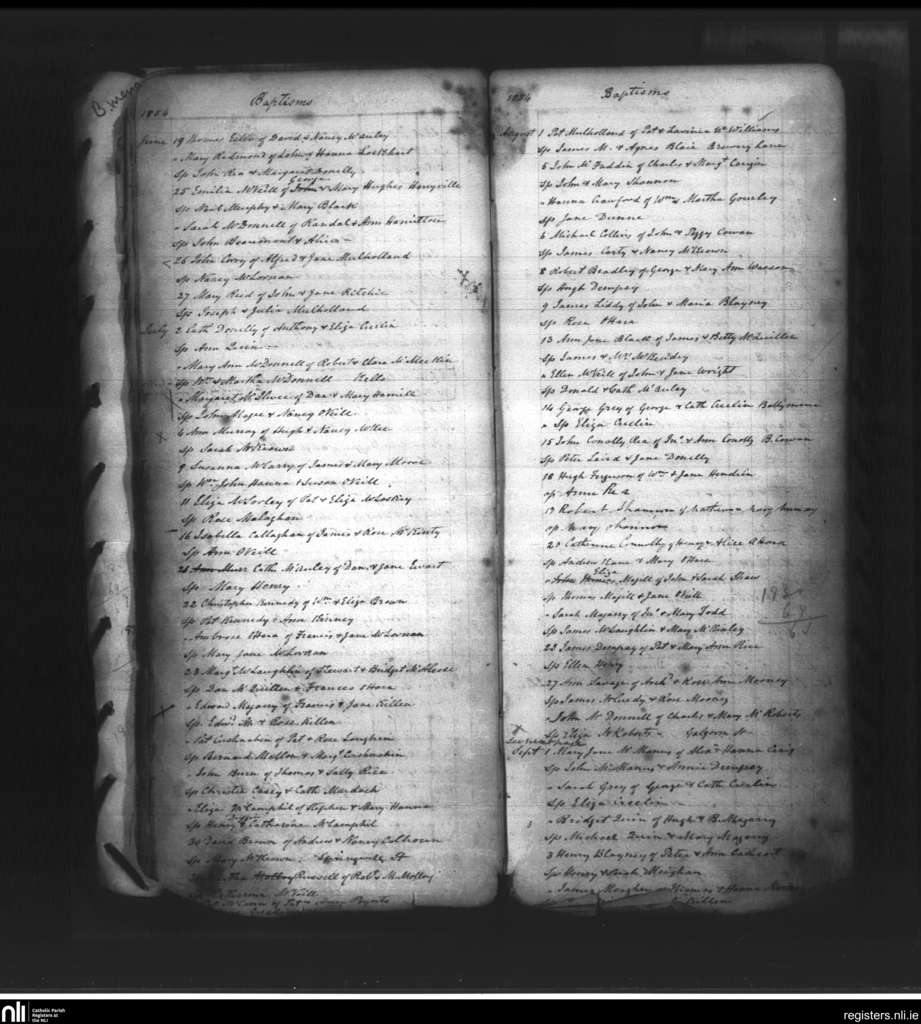 B.mena
Baptisms
1854
June 19 Thomas of David & Nancy McAuley
" Mary Redmond of John & Hanna Lockhart
Sp John Rea & Margaret Donelly
George
25 Emilia McNeill of John & Mary Hughes Harryville
Sp Neil Murphy & Mary Black
" Sarah McDonnell of Randal & Ann Hamilton
Sp John Beaumont & Alice
26 John Corry of Alfred & Jane Mulholland
Sp Nancy McLornan
27 Mary Reid of John & Jane Ritchie
Sp Joseph & Julia Mulholland
July 2 Cath Donelly of Anthony & Eliza
Sp Ann Quin
" Mary Ann McDonnell of Robert & Clara McMeekin
Sp Wm & Martha McDonnell Kells
" Margaret McIlwee of Dan & Mary Hamill
Sp John Magee & Nancy ONeill
4 Ann Murray of Hugh & Nancy McKee
Sp Sarah McKeown
9 Susanna McCarry of James & Mary Moore
Sp Wm John Hanna & Susan ONeill
11 Eliza McSorley of Pat & Eliza McLoskey
Sp Rose Mulaghan
16 Isabella Callaghan of James & Rose McKenty
Sp Ann ONeill
Cath McAuley of Dan & Jane Ewart
Sp Mary Henry
22 Christopher Kennedy of Wm & Eliza Brown
Sp Pat Kennedy & Ann Kenney
" Ambrose OHara of Francis & Jane McLornan
Sp Mary Jane McLornan
23 Margt McLaughlin of Stewart & Bridget McAleese
Sp Dan McQuillan & Frances OHara
" Edward Magarry of Francis & Jane Killen
Sp Edwd & Rose Killen
" Pat Cushnahan of Pat & Rose Loughrin
Sp Bernard Mallon & Margt Cushnahan
" John Burn of Thomas & Sally Rice
Sp Christie Casey & Cath Murdock
" Eliza McCamphil of Stephen & Mary Hanna
Sp Henry & Catharine McCamphil
30 David Brown of Andrew & Nancy Calhoun
Sp Mary McKeown Springwell St
Russell of Robt & McMolloy
McNeill
1854
Baptisms
August 1 Pat Mulholland of Pat & Lavinia McWilliams
Sp James M. & Agnes Blair Brewery Lane
5 John McFadden of Charles & Margt
Sp John & Mary Shannon
" Hanna Crawford of Wm & Martha Gourley
Sp Jane Dunne
6 Michael Collins of John & Peggy Cowan
Sp James Carty & Nancy McKeown
8 Robert Bradley of George & Mary Ann Wasson
Sp Hugh Dempsey
9 James Liddy of John & Maria Blayney
Sp Rosa OHara
13 Ann Jane Black of James & Betty McQuillen
Sp James & Ml McCurdey
" Ellen McNeill of John & Jane Wright
Sp Donald & Cath McAuley
14 George Grey of George & Cath Crerlin Ballymena
" Sp Eliza Crerlin
15 John Conolly Rea of Jno & Ann Conolly B. Cowan
Sp Peter Laird & Jane Donelly
16 Hugh Ferguson of Wm & Jane Hendlen
Sp Anne Rea
17 Robert Shannon of Matthew & Mary Murray
Sp Mary Shannon
20 Catherine Connolly of Henry & Alice OHara
Sp Andrew Kane & Mary OHara
Eliza
" John Magill of John & Sarah Shaw
Sp Thomas Magill & Jane Neill
" Sarah Magarry of Jno & Mary Todd
Sp James McLaughlin & Mary McKinley
23 James Dempsey of Pat & Mary Ann Rice
Sp Ellen Henry
27 Ann Savage of Archd & Rose Ann Mooney
Sp James McCurdy & Rose Mooney
" John McDonnell of Charles & Mary McRoberts
Sp Eliza McRoberts Galgorm St
See next page
Sept 1 Mary Jane McManus of Alexr & Hanna Craig
Sp John McManus & Annie Dempsey
" Sarah Grey of George & Cath Crerlin
Sp Eliza Crerlin
" Bridget Quin of Hugh & B. Magarry
Sp Michael Quin & Mary Magarry
3 Henry Blayney of Peter & Ann Cathcart
Sp Henry & Sarah Meighan
" James Meighan of Thomas & Hanna
nli
Catholic Parish
Registers at
the NLI
registers.nli.ie